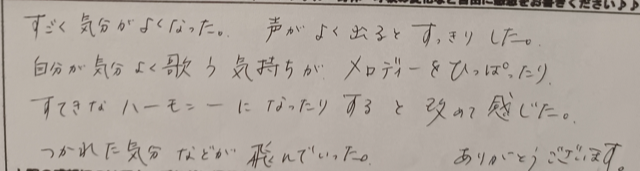 すごく気分がよくなった。 声がよく出るとすっきりした。
自分が気分よく歌う気持ちが メロディーをひっぱったり
すてきなハーモニーになったりすると改めて感じた。
つかれた気分などが飛んでいった。 ありがとうございます。